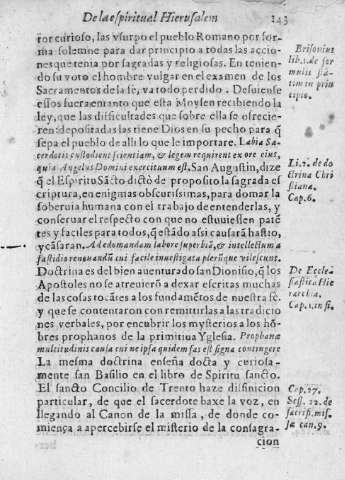 De la espiritual Hierusalem
143
ror curioso, las vsurpo el pueblo Romano por for-
ma solemne para dar principio a todas las accio-
nes que tenia por sagradas y religiosas. En tenien-
do su voto el hombre vulgar en el examen de los
Sacramentos de la fè, va todo perdido. Desuiense
essos fuera en tanto que esta Moysen recibiendo la
ley, que las dificultades que sobre ella se ofrecie-
ren depositadas las tiene Dios en su pecho para q̃
sepa el pueblo de alli lo que le importare. Labia Sa-
cerdotis custodient scientiam, & legem requirent ex ore eius,
quia Angelus Domini exercituum est. San Augustin, dize
q̃ el Espiritu Sãcto dictò de proposito la sagrada es
criptura, en enigmas obscurissimas, para domar la
soberuia humana con el trabajo de entenderlas, y
conseruar el respecto con que no estuuiessen patẽ
tes y faciles para todos, q̃ estãdo assi causarã hastio,
y cãsaran. Ad edomandam labore superbiã, & intellectum a
fastidio renuandũ cui facile inuestigata plerũque vilescunt.
Doctrina es del bien auenturado san Dionisio, q̃ los
Apostoles no se atreuierõ a dexar escritas muchas
de las cosas tocãtes a los fundamẽtos de nuestra fè,
y que se contentaron con remitirlas a las tradicio
nes verbales, por encubrir los mysterios a los hõ-
bres prophanos de la primitiua Yglesia. Prophana
multitudinis causa cui ne ipsa quidem fas est signa contingere
La mesma doctrina enseña docta y curiosa-
mente san Basilio en el libro de Spiritu sancto.
El sancto Concilio de Trento haze difinicion
particular, de que el sacerdote baxe la voz, en
llegando al Canon de la missa, de donde co-
miença a apercebirse el misterio de la consagra-
cion
Brisonius
lib. 1. de for
mulis sta-
tim in prin
cipio.
Li. 2. de do
ctrina Chri
stiana.
Cap. 6.
De Eccle-
siastica Hie
rarchia.
Cap. 1. in fi.
Cap. 27.
Sess. 22. de
sacrifi. mis.
sa can. 9.